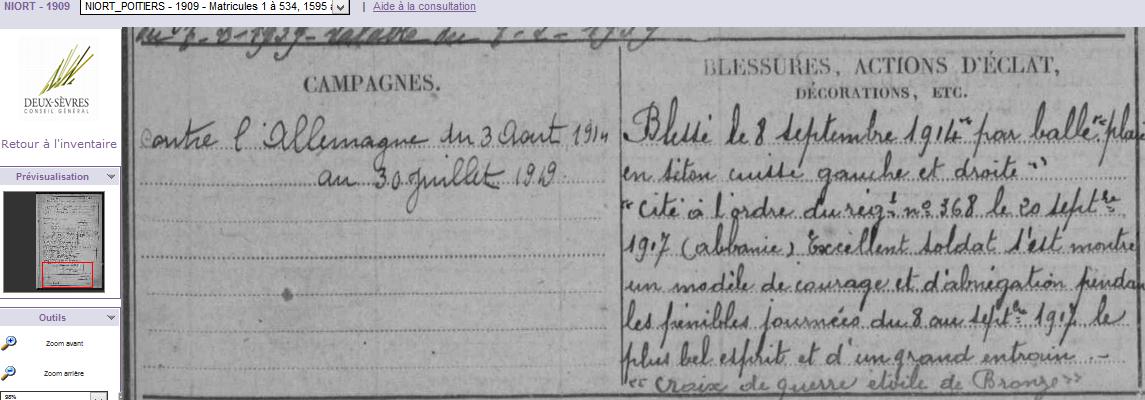 NIORT - 1909
NIORT_POITIERS - 1909 - Matricules 1 à 534, 1595 à
| Aide à la consultation
DEUX-SÈVRES
CONSEIL GÉNÉRAL
Retour à l'inventaire
Prévisualisation
Outils
Zoom avant
Zoom arrière
98%
CAMPAGNES.
Contre l'Allemagne du 3 Août 1914
au 30 juillet 1919
BLESSURES, ACTIONS D'ÉCLAT,
DÉCORATIONS, ETC.
Blessé le 8 septembre 1914 par balle "plaie
en séton cuisse gauche et droite"
"Cité à l'ordre du régt no 368 le 20 septbre
1917 (abbanie) Excellent soldat s'est montré
un modèle de courage et d'abnégation pendan
les pénibles journées du 8 au septbre 1917 le
plus bel esprit et d'un grand entrain .-
"Croix de guerre étoile de Bronze"